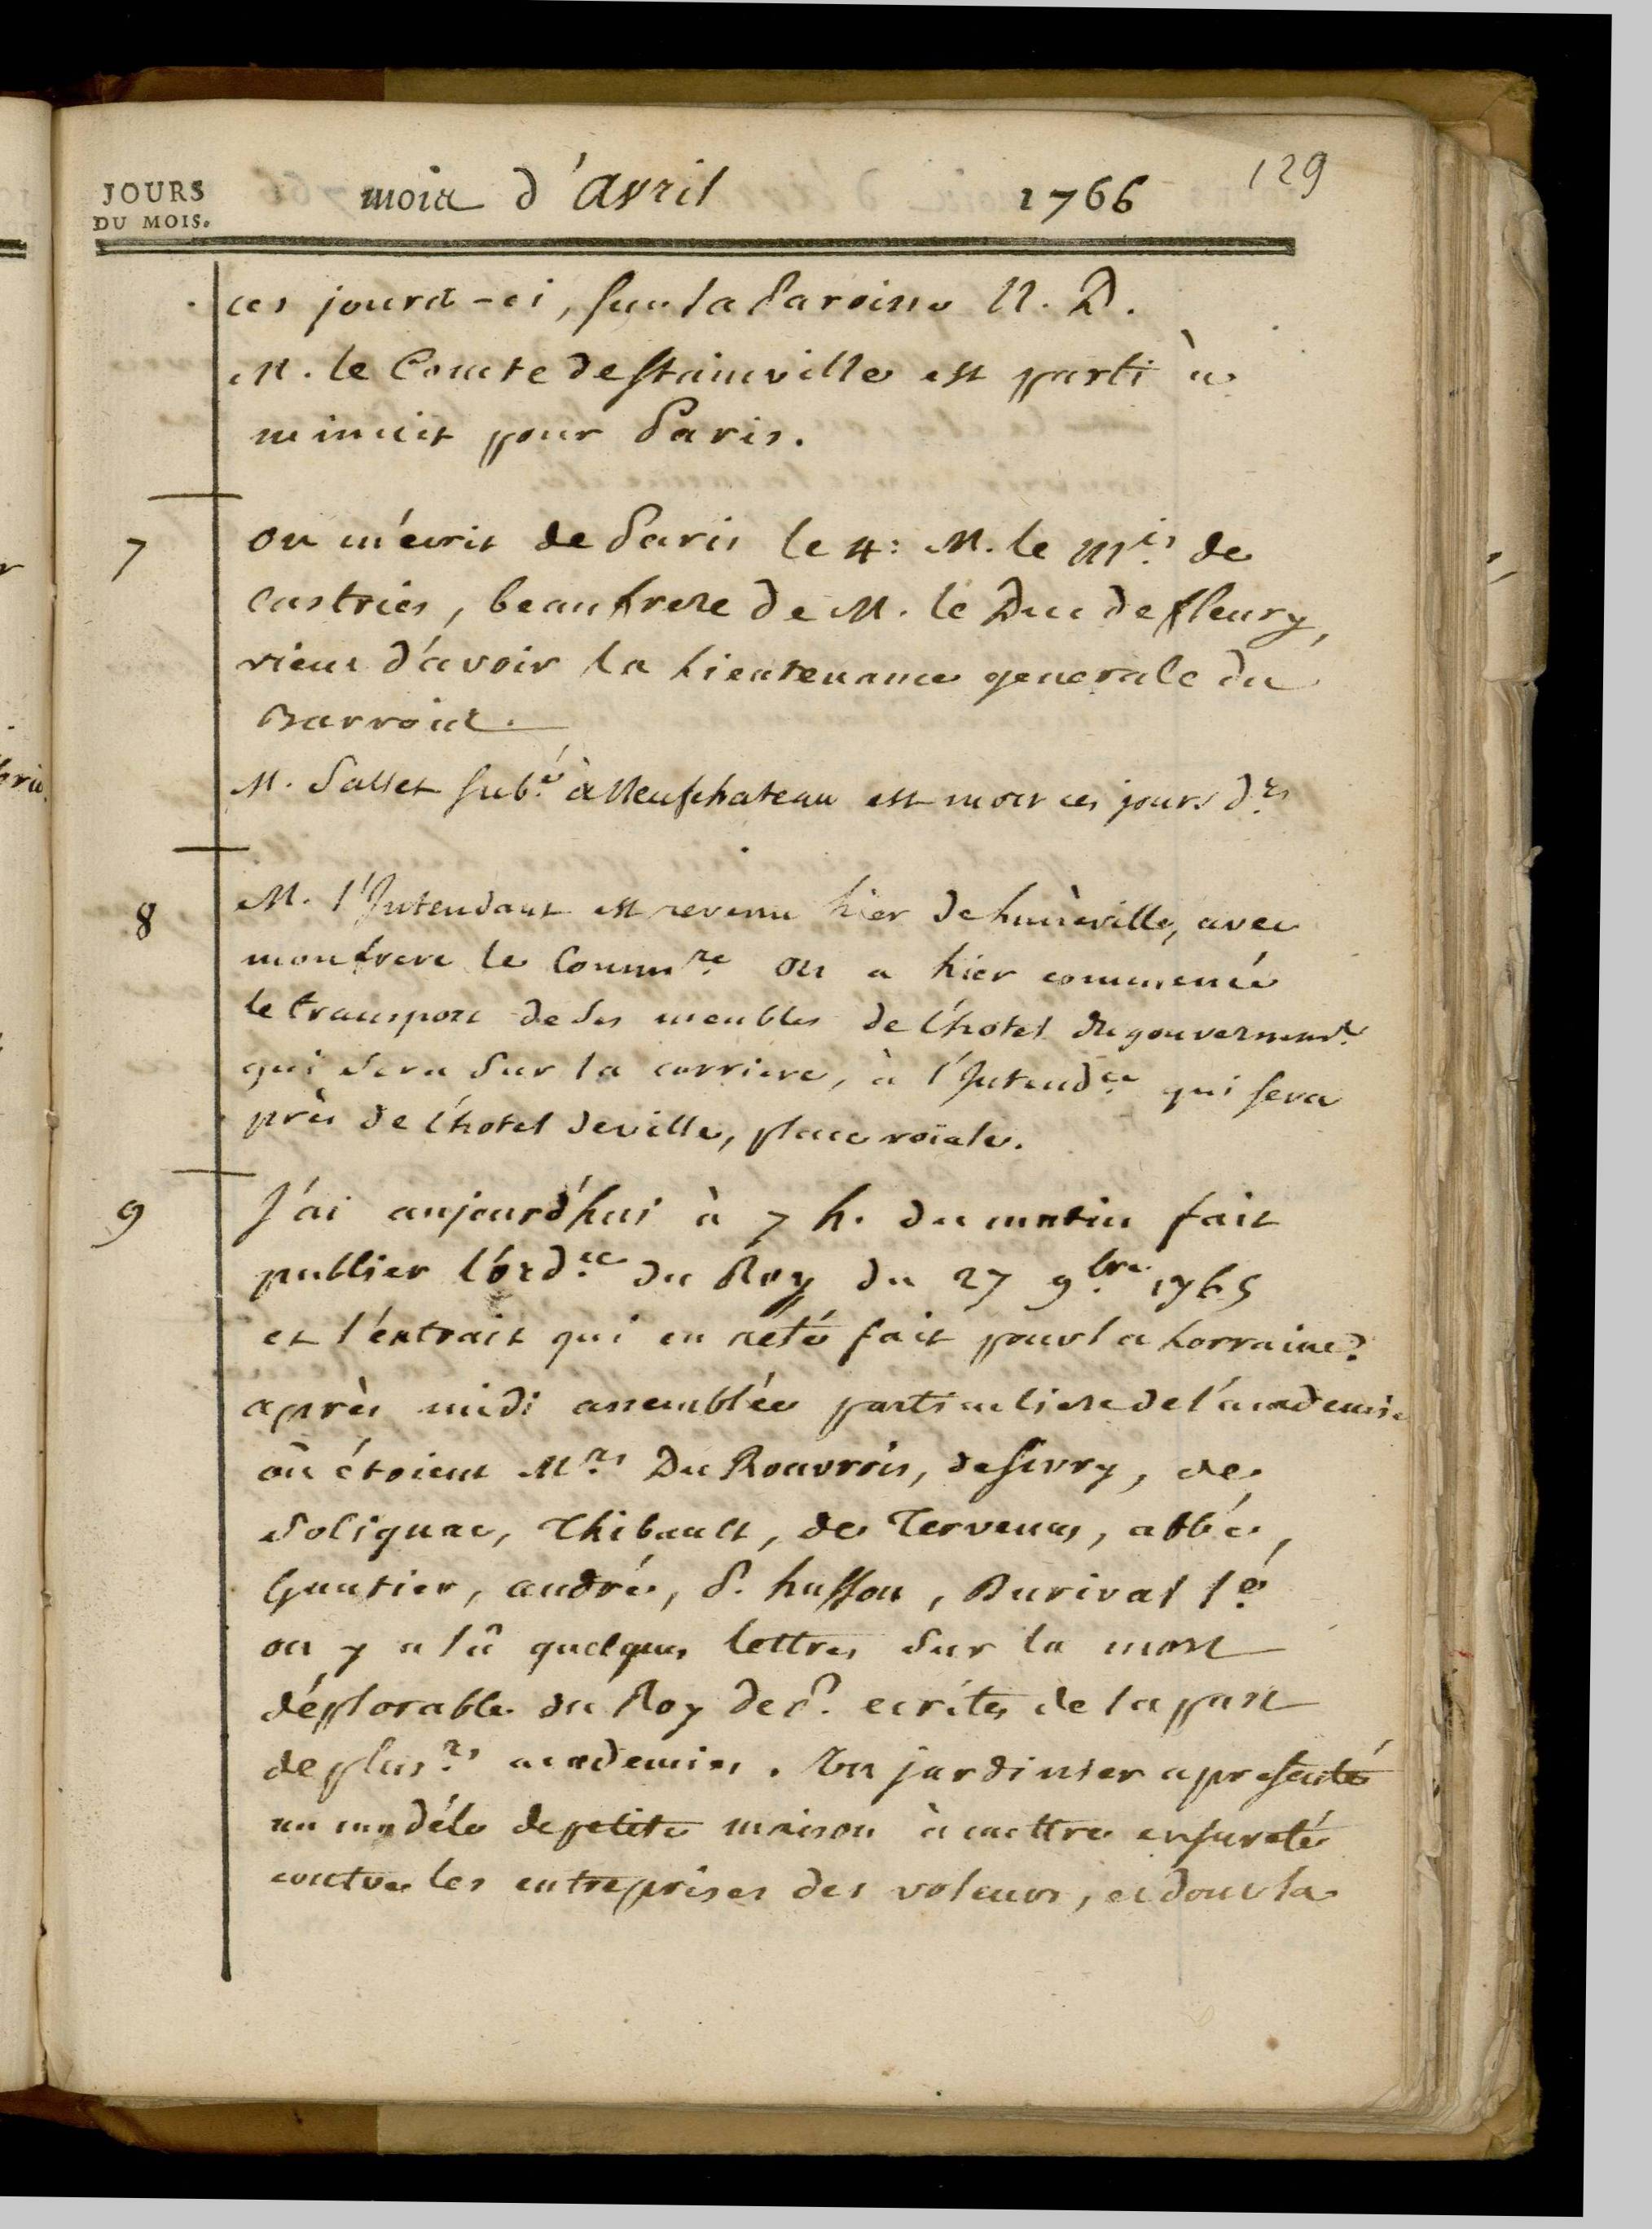 129
JOURS
DU MOIS.
mois d'Avril 1766
ces jours-ci, sur la Paroisse N. D.
M. le Comte de Stainville est parti à
minuit pour Paris.
7 on m'écrit de Paris le 4: M. le Mis. de
Castries, beaufrere de M. le Duc de fleury,
vient d'avoir la Lieutenance generale du
Barrois.
M. Sallet sub.é à Neufchateau est mort ces jours d.rs
8 M. l'Intendant est revenu hier de Luneville, avec
mon frere le Comm.re on a hier commencé
le transport de ses meubles de l'hotel du gouvernem.t
qui sera sur la carriere, à l'Intend.ce qui sera
près de l'hotel de ville, place roiale.
9 J'ai aujourd'hui à 7 h. du matin fait
publier l'ord.ce du Roy du 27 9.bre 1765
et l'extrait qui en a été fait pour la Lorraine.
après midi assemblée particuliere de l'academie
où étoient M.rs Du Rouvrois, de Sivry, de
Solignac, Thibault, de Tervenus, abbé,
Gautier, andré, P. husson, Durival l'é
on y a lû quelques lettres sur la mort
déplorable du Roy de P. ecrites de la part
de plus.rs academies. Un jardinier a presenté
un modéle de petite maison à mettre en sureté
contre les entreprises des voleurs, et dont la